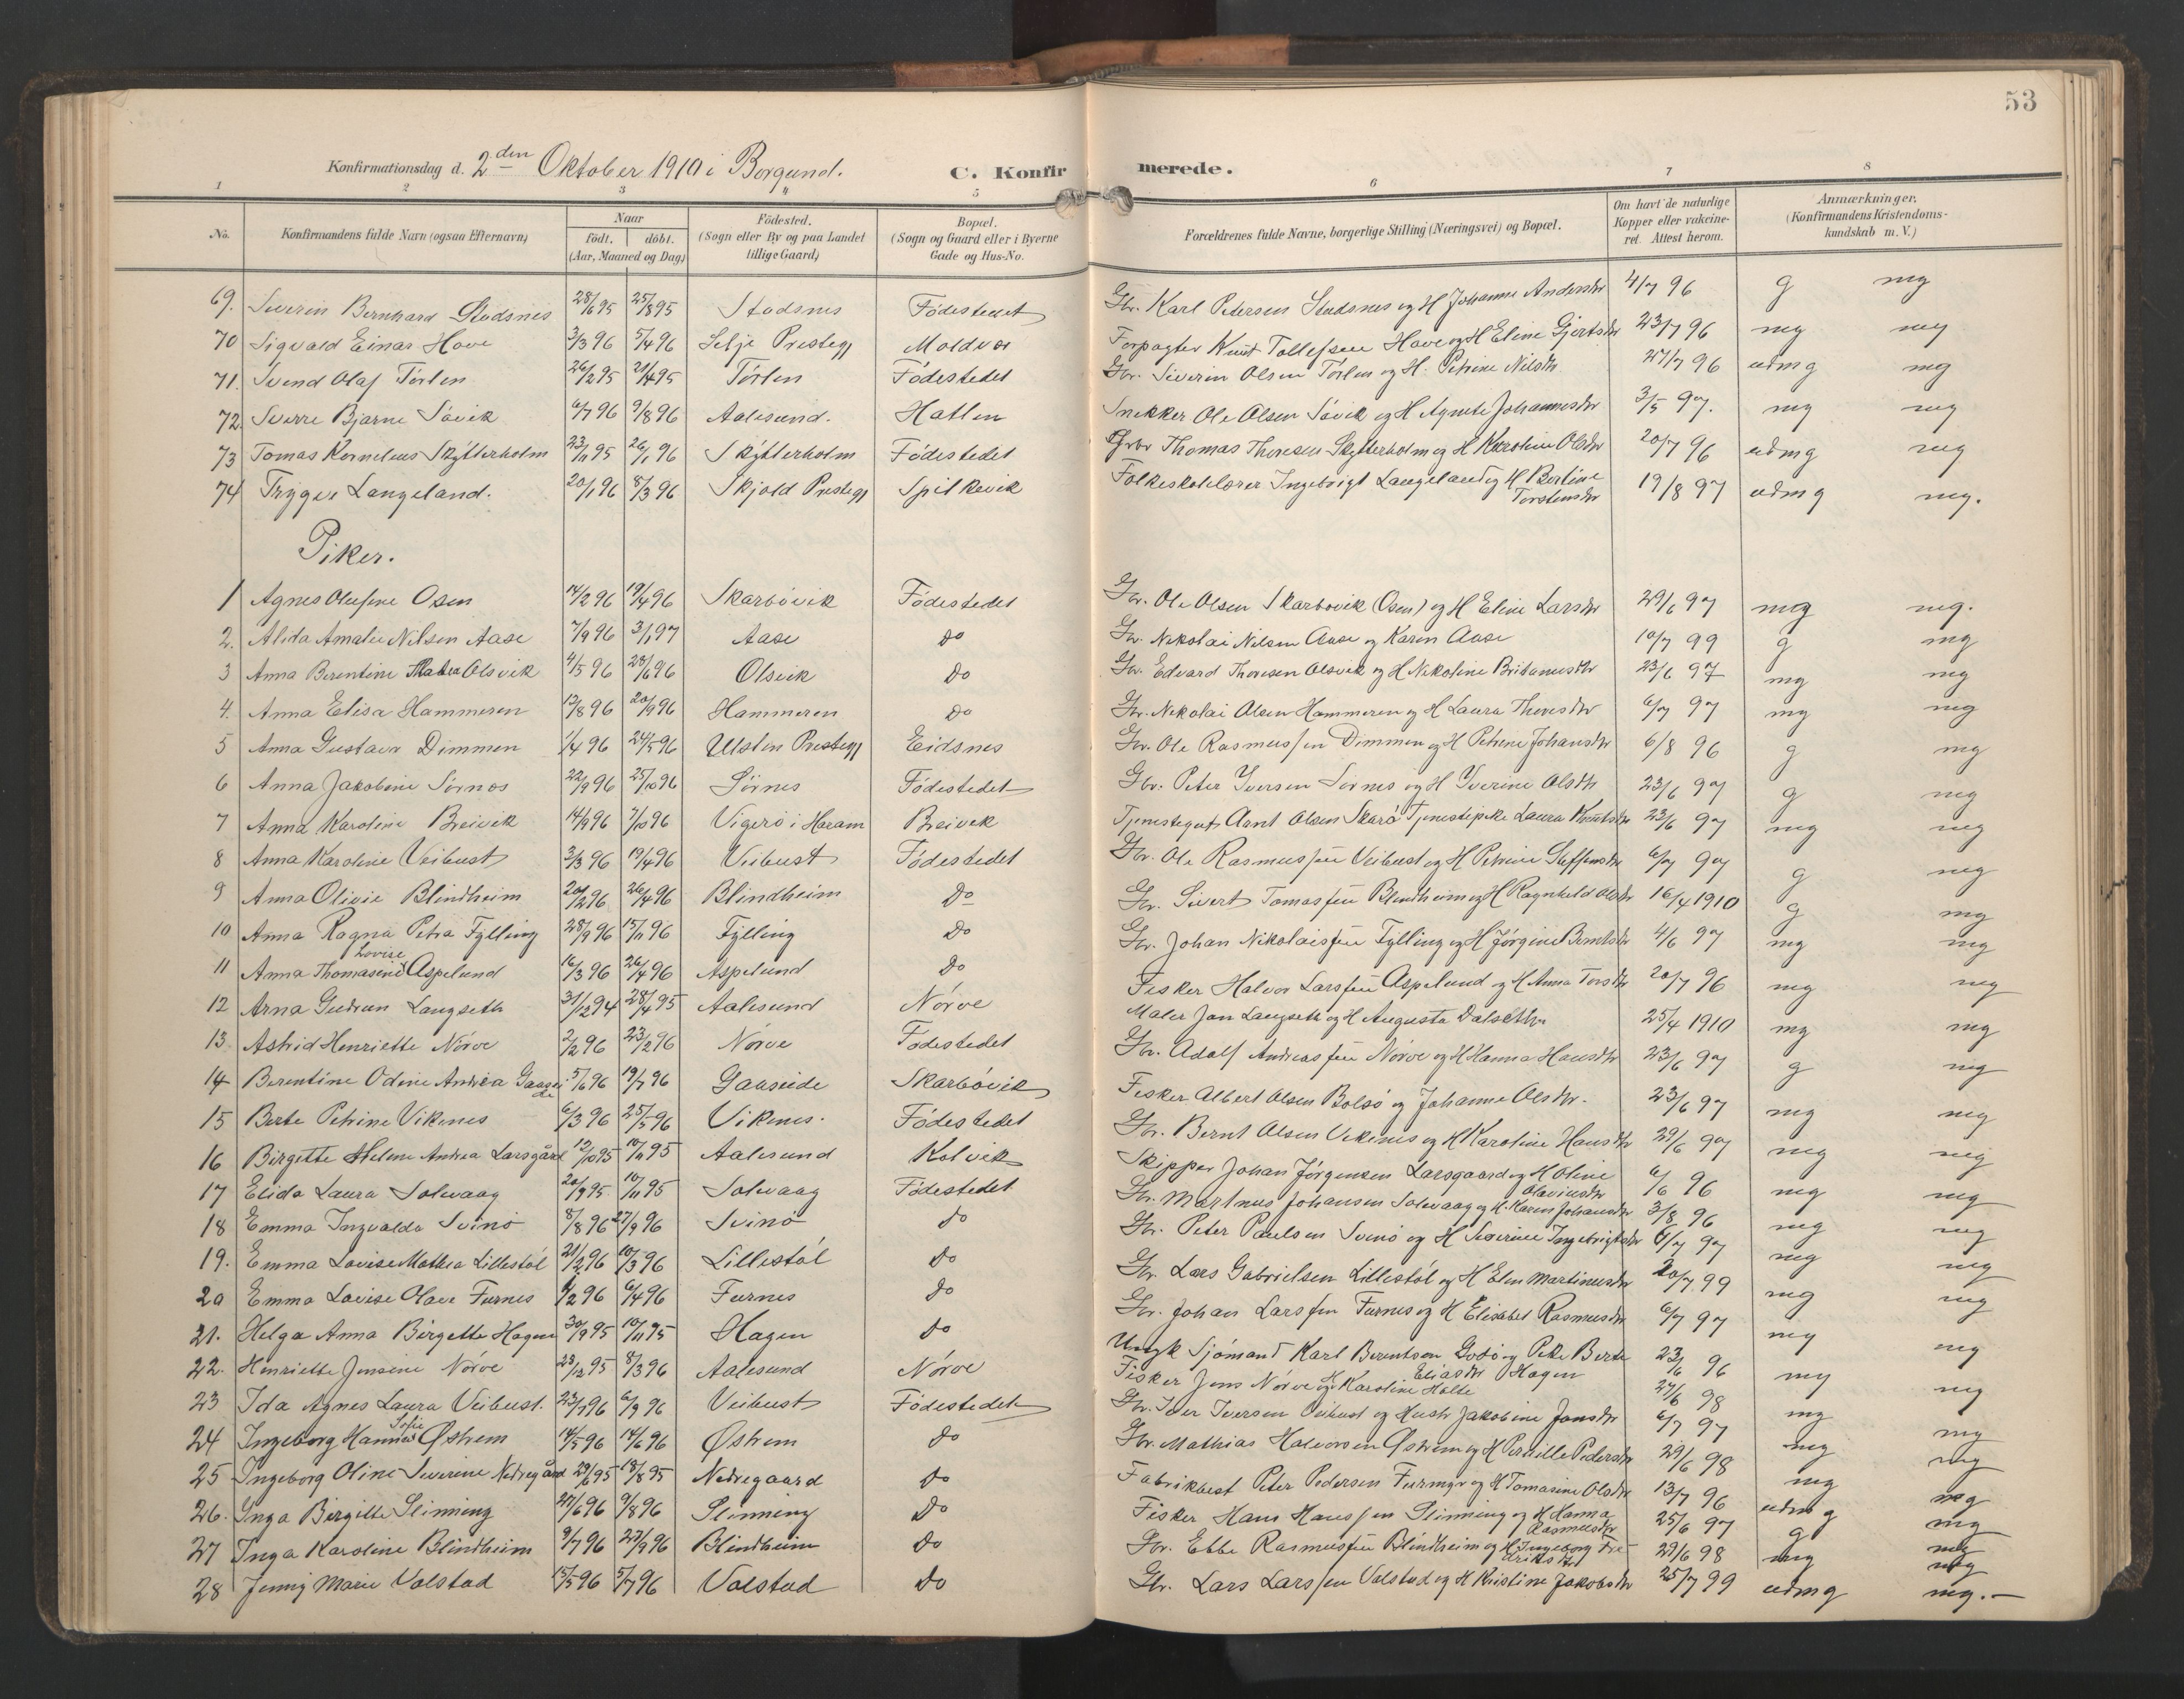 53
Konfirmationsdag d. 2den Oktober 1910 i Borgund. C. Konfirmerede.
1 2 3 4 5 6 7 8
No. Konfirmandens fulde Navn (ogsaa Efternavn) Naar födt. döbt. (Aar, Maaned og Dag) Födested. (Sogn eller By og paa Landet tillige Gaard) Bopæl. (Sogn og Gaard eller i Byerne Gade og Hus-No. Forældrenes fulde Navne, borgerlige Stilling (Næringsvei) og Bopæl. Om havt de naturlige Kopper eller vakcineret. Attest herom. Anmærkninger. (Konfirmandens Kristendomskundskab m. V.)
69. Severin Bernhard Stadsnes 28/6 95 25/8 95 Stadsnes Födestedet Gbr. Karl Petersen Stadsnes og H Johanne Andersdr 4/7 96 g mg
70 Sigvald Einar Hove 3/3 96 5/4 96 Selje Prestegj Moldvær Forpagter Knut Tollefsen Hove og H Eline Gjertsdr 23/7 96 mg mg
71. Svend Olaf Törlen 26/2 95 21/4 95 Törlen Födestedet Gbr. Severin Olsen Törlen og H. Petrine Nilsdr 27/7 96 udmg mg
72. Sverre Bjarne Sövik 6/7 96 9/8 96 Aalesund. Hatlen Snekker Ole Olsen Sövik og H Agnete Johannesdr 3/5 97. mg mg
73 Tomas Kornelius Skytterholm 23/11 95 26/1 96 Skytterholm Födestedet Gbr Thomas Thoresen Skytterholm og H Karoline Olsdr 20/7 96 udmg mg
74 Trygve Langeland. 20/1 96 8/3 96 Skjold Prestegj Spilkevik Folkeskolelærer Ingebrigt Langeland og H Bertine Torstensdr 19/8 97 udmg mg.
Piker.
1 Agnes Olufine Osen 14/2 96 19/4 96 Skarbövik Födestedet Gbr. Ole Olsen Skarbövik (Osen) og H Eline Larsdr 29/6 97 mg mg.
2. Alida Amalie Nilsen Aase 7/9 96 3/1 97 Aase Do Gbr. Nikolai Nilsen Aase og Karen Aase 10/7 99 g mg
3 Anna Berentine Thalea Olsvik 4/5 96 28/6 96 Olsvik Do Gbr. Edvard Thoresen Olsvik og H Nikoline Britanusdr 23/6 97 mg mg
4. Anna Elisa Hammeren 13/8 96 20/9 96 Hammeren Do Gbr. Nikolai Olsen Hammeren og H Laura Thoresdr 6/7 97 mg mg
5 Anna Gustava Dimmen 1/4 96 24/5 96 Ulsten Prestegj Eidsnes Gbr. Ole Rasmussen Dimmen og H Petrine Johansdr 6/8 96 g mg
6 Anna Jakobine Sörnes 22/9 96 25/10 96 Sörnes Födestedet Gbr. Peter Iversen Sörnes og H Iverine Olsdr 23/6 97 g mg
7 Anna Karoline Breivik 14/9 96 7/10 96 Vigerö i Haram Breivik Tjenestegut Arnt Olsen Skarö Tjenestepike Laura Knutsdr 23/6 97 mg mg
8 Anna Karoline Veibust 3/3 96 19/4 96 Veibust Födestedet Gbr. Ole Rasmussen Veibust og H Petrine Steffensdr 6/7 97 g mg
9 Anna Olivie Blindheim 20/2 96 26/4 96 Blindheim Do Gbr. Sivert Tomassen Blindheim og H Ragnhild Olsdr 16/4 1910 g mg
10 Anna Ragna Petra Fylling 28/9 96 15/11 96 Fylling Do Gbr. Johan Nikolaisen Fylling og H Jörgine Berntsdr 4/6 97 mg mg
11 Anna Thomasine Lovise Aspelund 16/3 96 26/4 96 Aspelund Do Fisker Halvor Larssen Aspelund og H Anna Torsdr 20/7 96 mg mg
12 Arna Gudrun Langseth 31/12 94 28/4 95 Aalesund Nörve Maler Jan Langseth og H Augusta Dalseth 25/4 1910 mg mg
13 Astrid Henriette Nörve 2/2 96 23/2 96 Nörve Födestedet Gbr. Adolf Andreassen Nörve og H Hanna Hansdr 23/6 97 g mg
14 Berentine Odine Andrea Gaaseide 5/6 96 19/7 96 Gaaseide Skarbövik Fisker Albert Olsen Bolsö og Johanne Olsdr. 23/6 97 mg mg
15 Berte Petrine Vikenes 6/3 96 25/5 96 Vikenes. Födestedet Gbr. Bernt Olsen Vikenes og H Karoline Hansdr 29/6 97 mg mg
16 Birgitte Helene Andrea Larsgård 12/10 95 10/11 95 Aalesund Kolvik Skipper Johan Jörgensen Larsgaard og H Oline Olaviusdr 6/6 96 mg mg
17 Elida Laura Solevaag 20/9 95 10/11 95 Solevaag Födestedet Gbr. Martinus Johansen Solevaag og H. Karen Johansdr 3/8 96 mg mg
18 Emma Ingvalda Svinö 8/8 96 27/9 96 Svinö Do Gbr. Peter Paulsen Svinö og H Severine Ingebrigtsdr 6/7 97 mg mg
19. Emma Lovise Mathea Lillestöl 21/1 96 10/3 96 Lillestöl Do Gbr Lars Gabrielsen Lillestöl og H Elen Martinusdr 20/7 99 mg mg
20 Emma Lovise Olave Furnes 1/2 96 6/4 96 Furnes Do Gbr. Johan Larssen Furnes og H Elisabet Rasmusdr 6/7 97 mg mg
21. Helga Anna Birgitte Hagen 30/9 95 10/11 95 Hagen Do Ungk Sjömand Karl Berentsen Godö og Pike Berte Eliasdr Hagen 23/6 96 mg mg
22. Henriette Jensine Nörve 23/12 95 8/3 96 Aalesund Nörve Fisker Jens Nörve og H Karoline Holte 27/6 98 mg mg
23 Ida Agnes Laura Veibust. 23/7 96 6/9 96 Veibust Födestedet Gbr. Iver Iversen Veibust og Hustr Jakobine Jonsdr 6/7 97 mg mg
24 Ingeborg Hanna Sofie Østrem 14/5 96 14/6 96 Østrem Do Gbr. Mathias Halvorsen Østrem og H Pernille Pedersdr 29/6 98 mg mg
25 Ingeborg Oline Severine Nedregård 29/6 95 18/8 95 Nedregaard Do Fabrikbest Peter Pedersen Furmyr og H Tomasine Olsdr 13/7 96 udmg mg
26. Inga Birgitte Slinning 27/6 96 9/8 96 Slinning Do Fisker Hans Hanssen Slinning og H Hanna Rasmusdr 25/6 97 g mg
27 Inga Karoline Blindheim 9/7 96 27/9 96 Blindheim Do Gbr. Ebbe Rasmussen Blindheim og H Ingeborg Freriksdr 29/6 98 mg mg
28 Jenny Marie Valstad 15/5 96 5/7 96 Valstad Do Gbr. Lars Larssen Valstad og H Kristine Jakobsdr 25/7 99 udmg mg.—